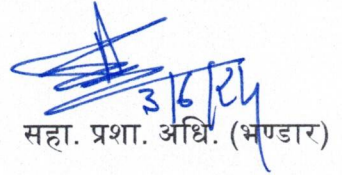 3/6/24
सहा. प्रशा. अधि. (भण्डार)